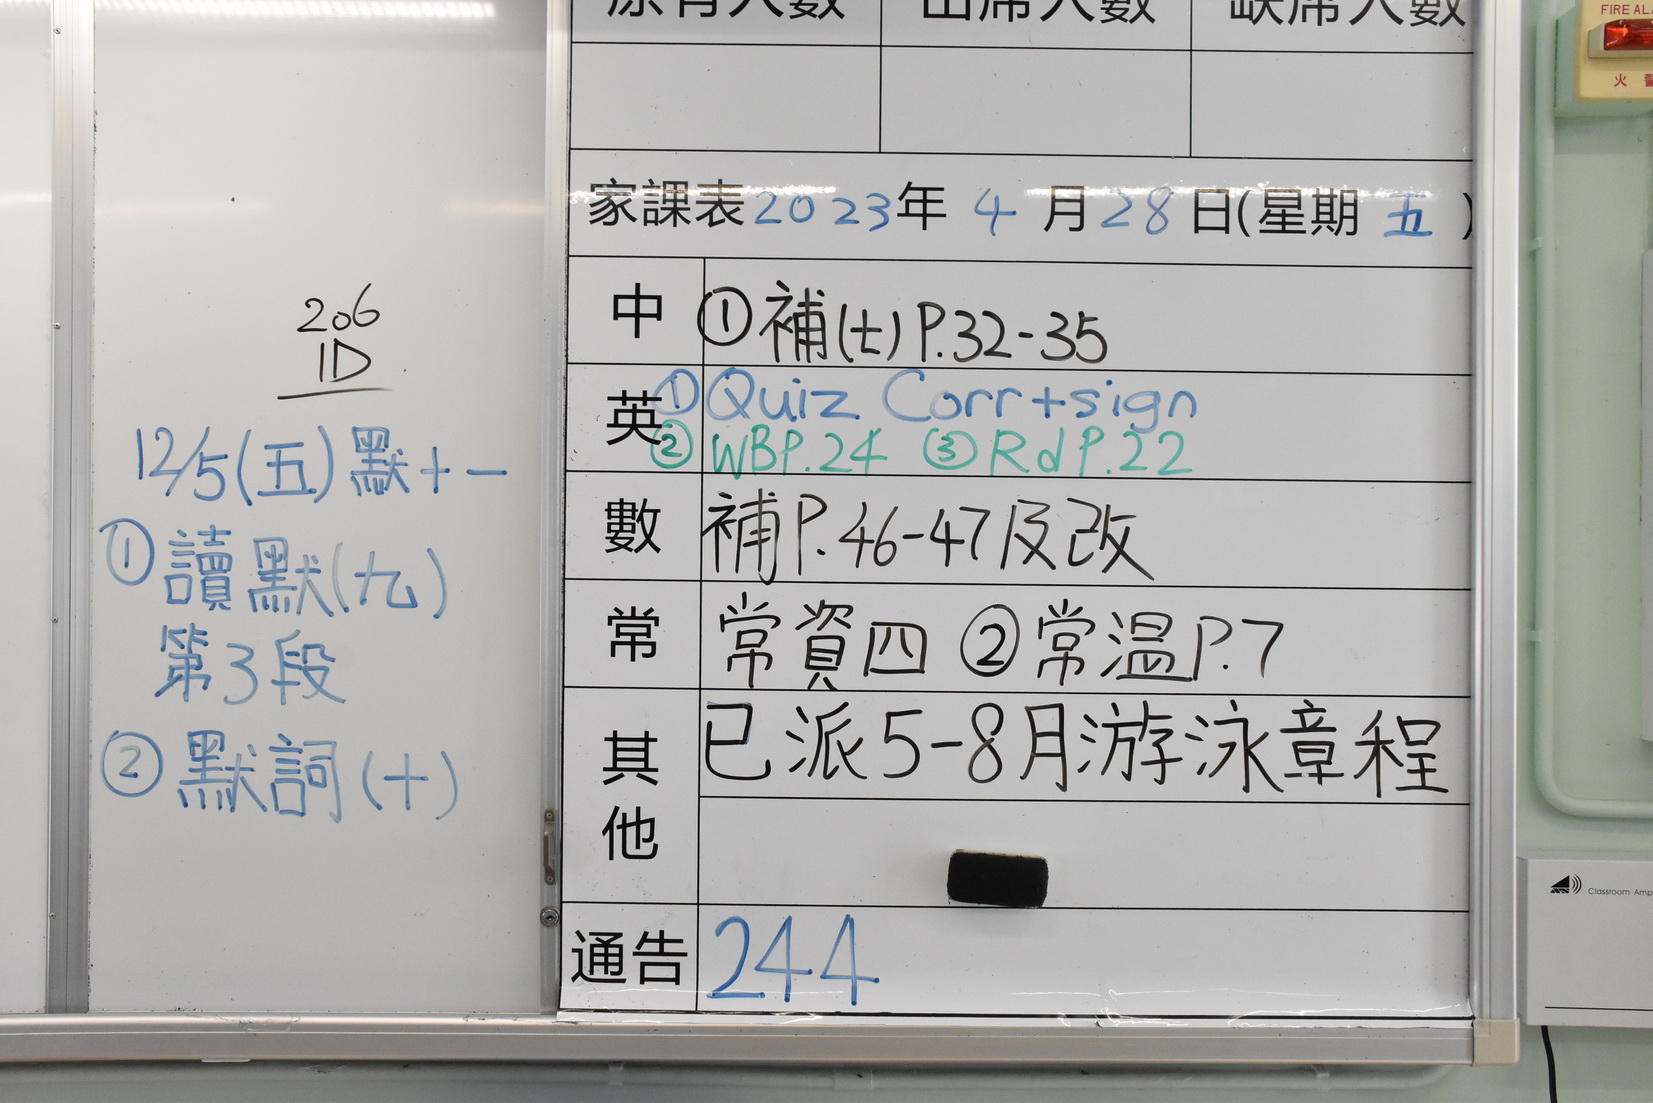 206
1D
12/5(五)默十一
①讀默(九)
第3段
②默詞(十)
原有人數 出席人數 缺席人數
家課表2023年4月28日(星期五)
中 ①補(七)P.32-35
英 ①Quiz Corr+sign
②WBP.24 ③RdP.22
數 補P.46-47及改
常 常資四 ②常溫P.7
其他 已派5-8月游泳章程
通告 244
FIRE AL
火警
Classroom Amp